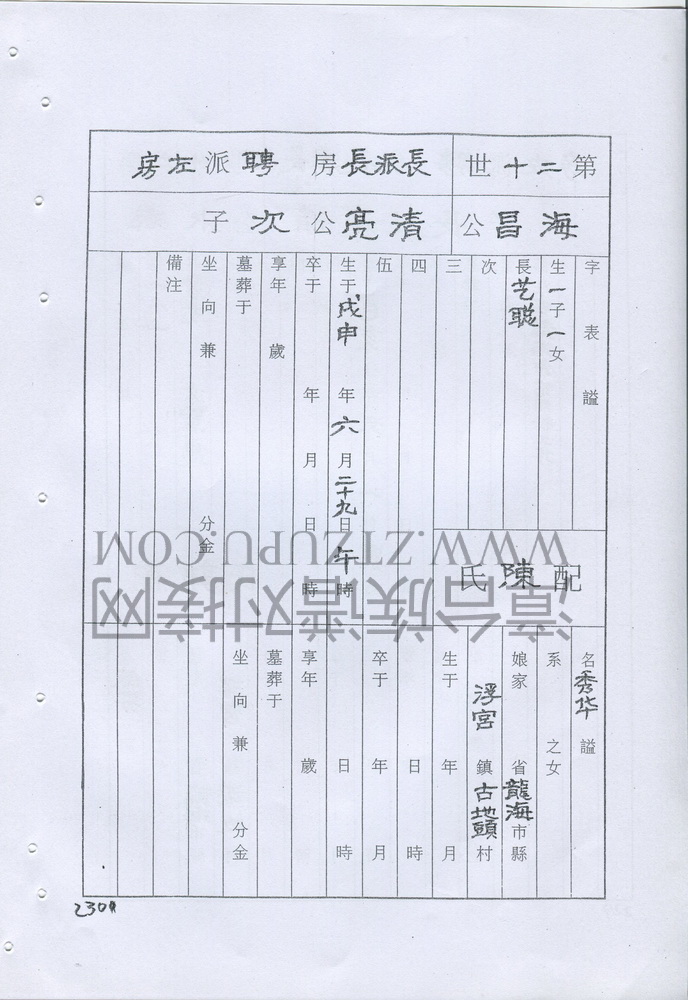 第二十世
長派長房聘派左房
海昌公
清亮公次子
字表謚
生一子一女
長艺聪
次
三
四
伍
生于戊申年六月二十九日午時
卒于年月日時
享年歲
墓葬于
坐向兼分金
備注
配陳氏
名秀华謚
系之女
娘家省龍海市縣
浮宮鎮古地頭村
生于年月
日時
卒于年月
日時
享年歲
墓葬于
坐向兼分金
WWW.ZTZUPU.COM
漳台族谱对接网